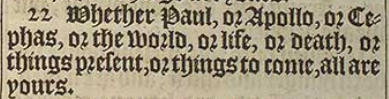 22 Whether Paul, or Apollo, or Ce-
phas, or the world, or life, or death, or
things present, or things to come, all are
yours.